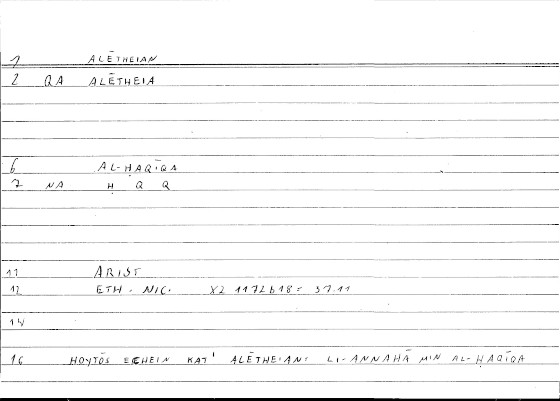 1 ALĒTHEIAN
2 QA ALĒTHEIA
6 AL-ḤAQĪQA
7 NA Ḥ Q Q
11 ARIST
12 ETH. NIC. X2 1172b18 = 37.11
14
16 HOYTŌS ECHEIN KAT' ALĒTHEIAN: LI-ANNAHĀ MIN AL-ḤAQĪQA